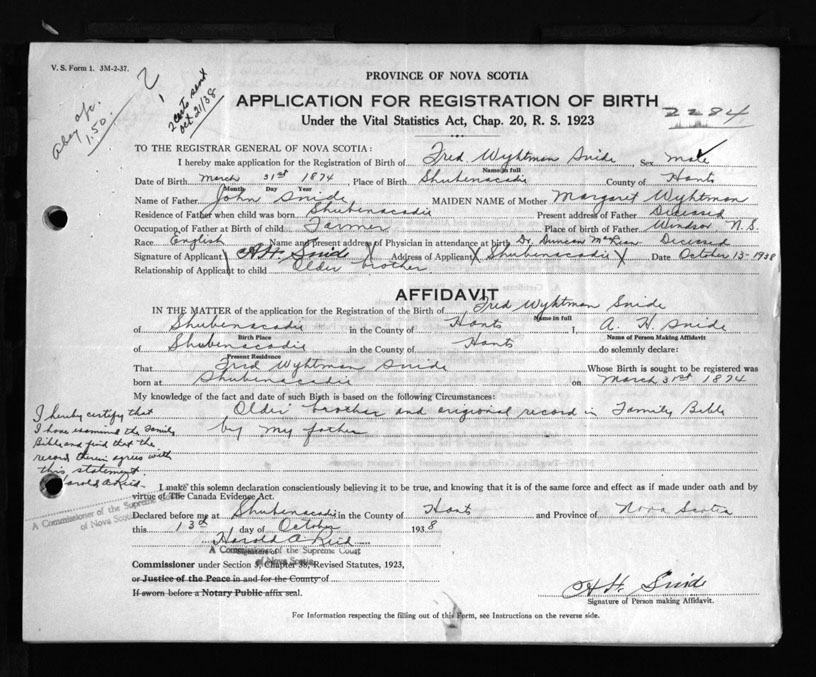 V. S. Form 1. 3M-2-37.
2
1
2 certs sent
Oct 21/38
1.50
PROVINCE OF NOVA SCOTIA
APPLICATION FOR REGISTRATION OF BIRTH
2284
Under the Vital Statistics Act, Chap. 20, R. S. 1923
TO THE REGISTRAR GENERAL OF NOVA SCOTIA:
I hereby make application for the Registration of Birth of Fred Wyhtman Snide Sex male
Name in full
Date of Birth March 31st 1874 Place of Birth Shubenacadie County of Hants
Month Day Year
Name of Father John Snide MAIDEN NAME of Mother Margaret Wyhtman
Residence of Father when child was born Shubenacadie Present address of Father Deceased
Occupation of Father at Birth of child Farmer Place of birth of Father Windsor N.S.
Race English Name and present address of Physician in attendance at birth Dr. Duncan McKean Deceased
Signature of Applicant A H. Snide Address of Applicant Shubenacadie Date October 13 - 1938
Relationship of Applicant to child Older brother
AFFIDAVIT
IN THE MATTER of the application for the Registration of the Birth of Fred Wyhtman Snide
Name in full
of Shubenacadie in the County of Hants I, A. H. Snide
Birth Place Name of Person Making Affidavit
of Shubenacadie in the County of Hants do solemnly declare:
Present Residence
That Fred Wyhtman Snide Whose Birth is sought to be registered was
born at Shubenacadie on March 31st 1874
My knowledge of the fact and date of such Birth is based on the following Circumstances:
Older brother and origional record in Family Bible
by my father
I hereby certify that
I have examined the Family
Bible and find that the
record therein agrees with
this statement.
Harold A Reid.
A Commissioner of the Supreme
of Nova Scotia
I make this solemn declaration conscientiously believing it to be true, and knowing that it is of the same force and effect as if made under oath and by
virtue of The Canada Evidence Act.
Declared before me at Shubenacadie in the County of Hants and Province of Nova Scotia
this 13th day of October 1938
Harold A Reid
A Commissioner of the Supreme Court
of Nova Scotia
Commissioner under Section 3, Chapter 38, Revised Statutes, 1923,
or Justice of the Peace in and for the County of
If sworn before a Notary Public affix seal.
A H. Snide
Signature of Person making Affidavit.
For Information respecting the filling out of this Form, see Instructions on the reverse side.